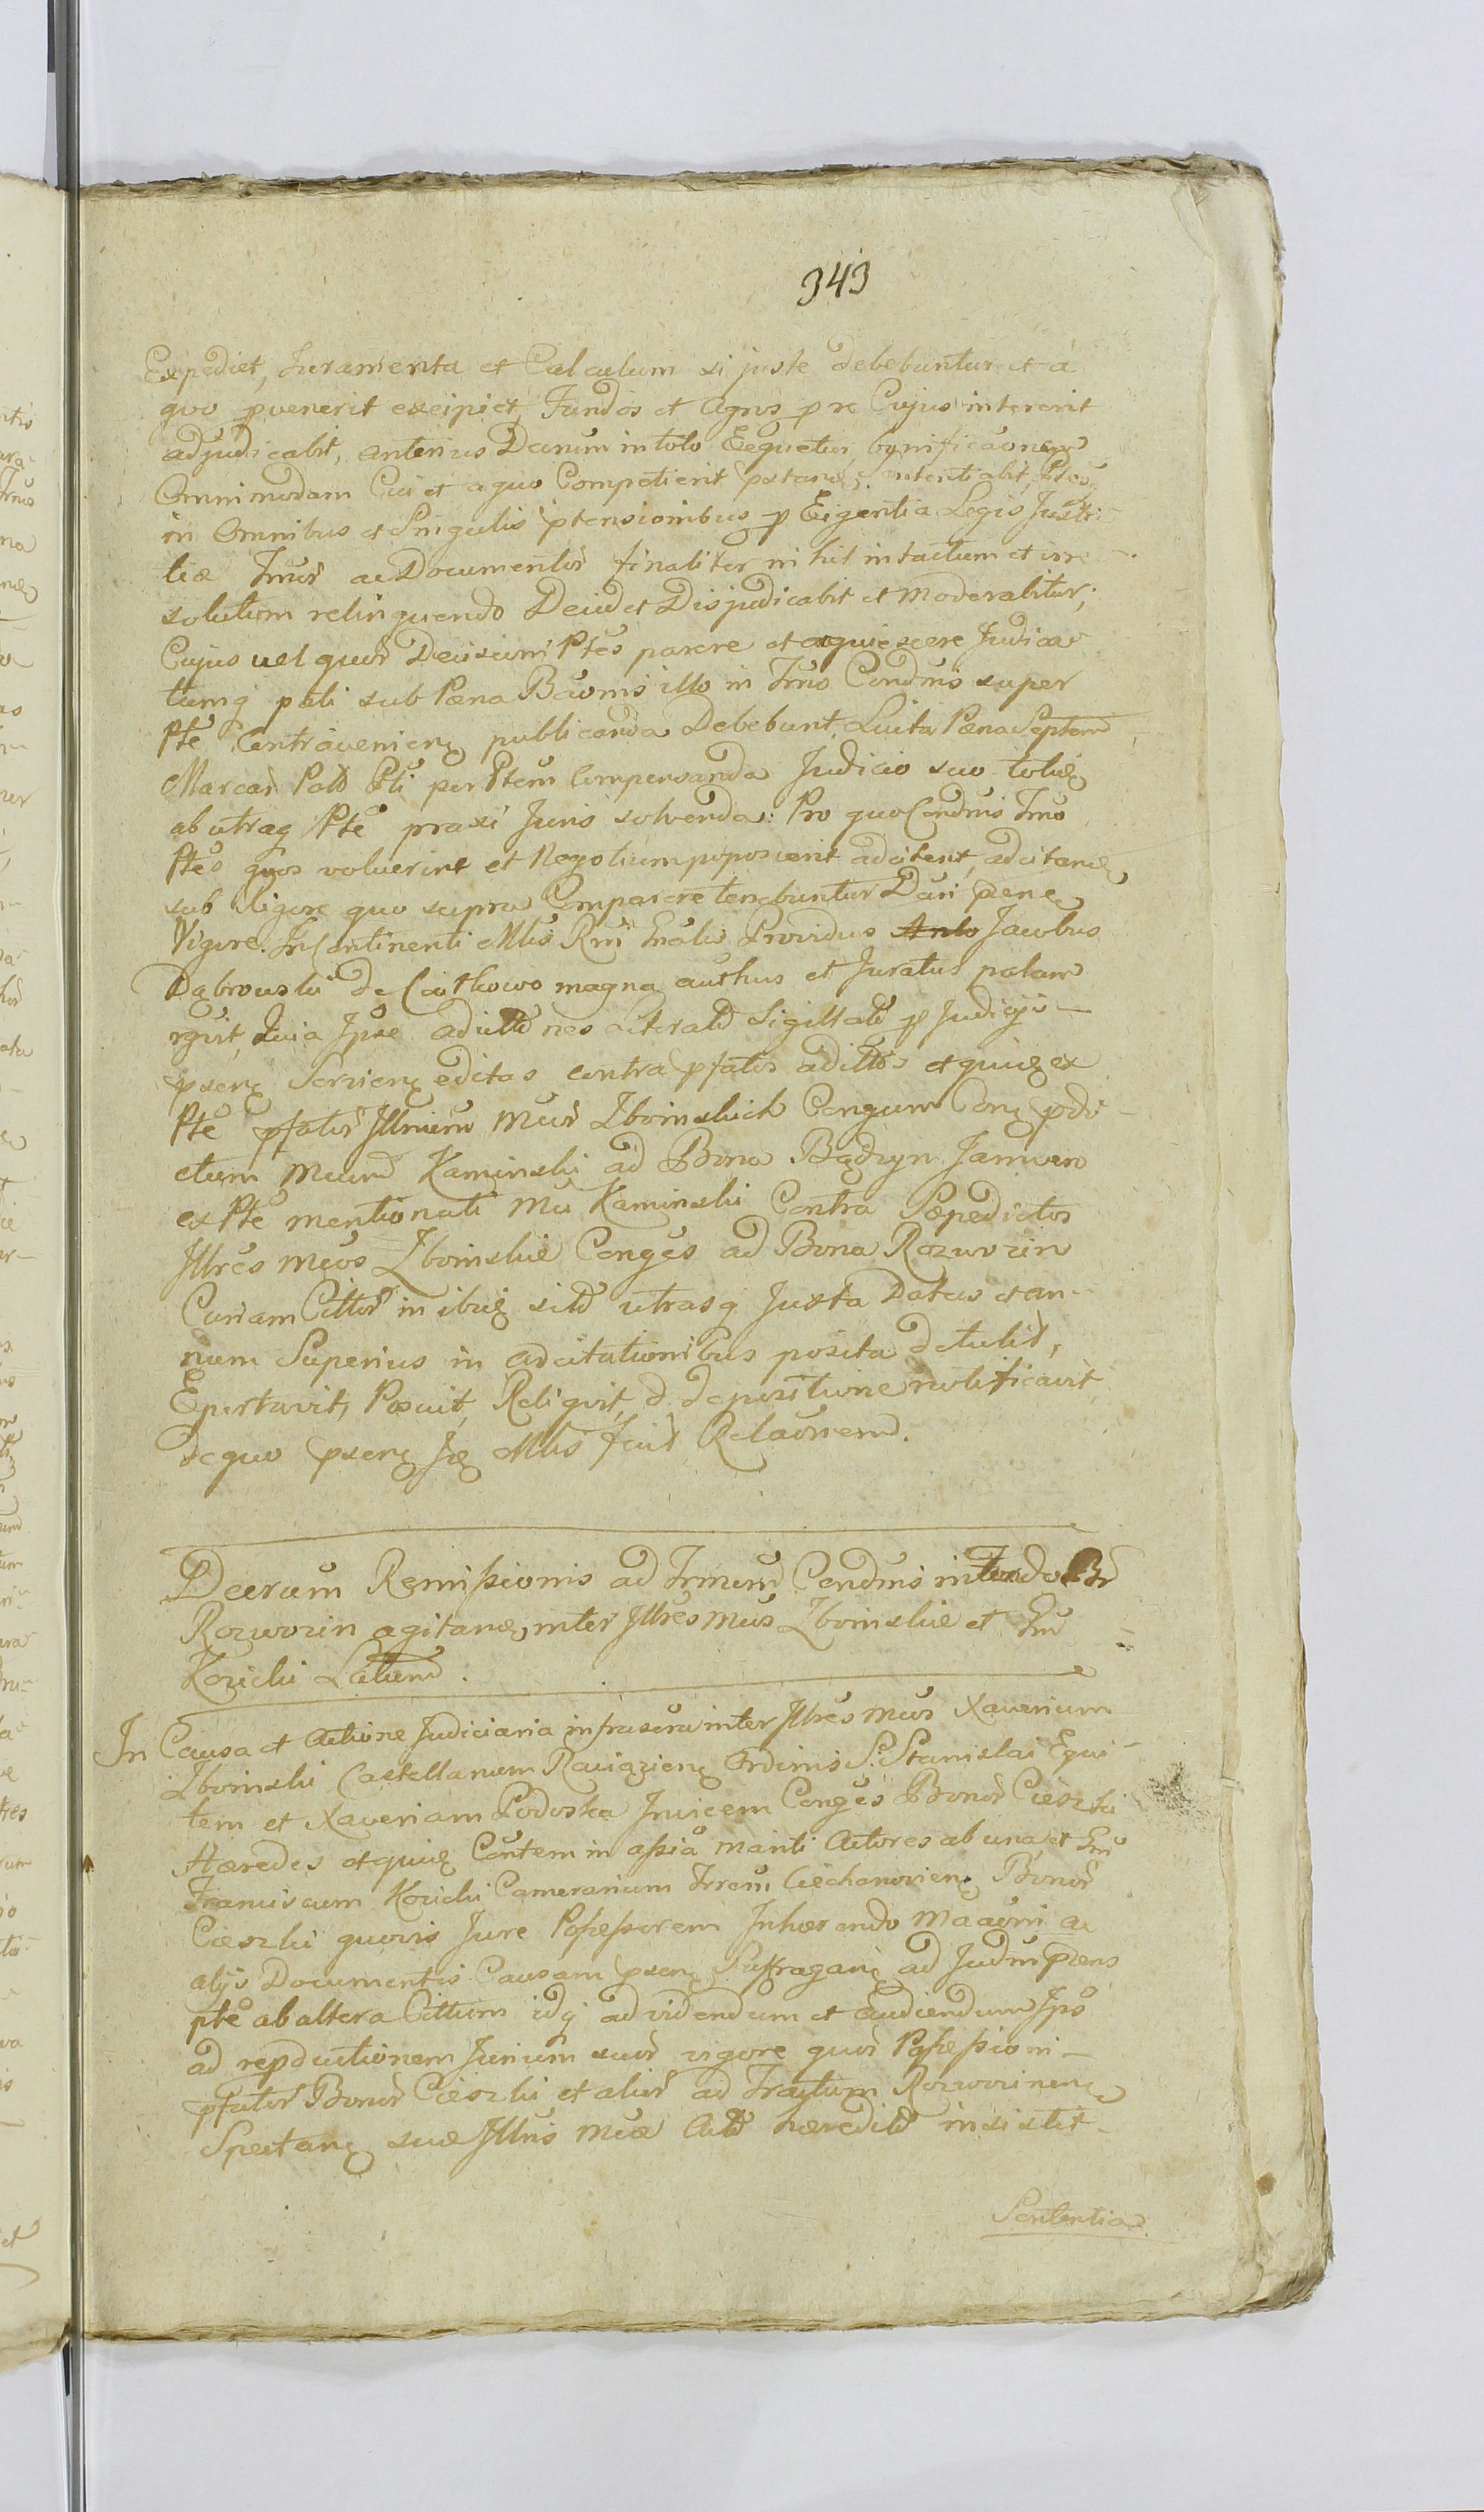 343
Expediet, Juramenta et Calculum si juste debebuntur et a
quo pvenerit excipiet, Fundos et Agros p re Cujus intererit
adjudicabit, anterius Decrum in toto Exequetur, bonificaonem
Omnimodam Cui et a quo Competierit pstan. sententiabit, Ptes
in Omnibus et Singulis ptensionibus p Exigentia Legis Justi-
tiæ Jnur ac Documentor finaliter nihil intactum et irre-
solutum relinquendo Decidet Disjudicabit et moderabitur;
Cujus vel quor Decisioni Ptes parere et acquiescere Judica-
tumq pati sub Pæna Baonis illo in Trno Condnis super
Pte Contravenien publicanda Debebunt, Luita Pæna Septem
Marcar Pold Ptli per Ptem Compensanda Judicio suo toties
ab utraq Pte praxi Juris solvenda: Pro quo Condnis Trno
Ptes quos voluerint et Negotium poposcerit adcitent, adcitanq
sub Rigore quo supra Comparere tenebuntur Dcri psenq
Vigore. In Continenti Mlis Rni Gnalis Providus Anto Jacobus
Dąbrowski de Ciotkowo magna authus et Juratus palam
rgvit, Quia Ipse adcittnes Literales Sigillat p Judicijs
psenq Servienq editas contra pfatos adcittos et quidq ex
Pte pfator Illrium Mcor Zboinskich Congum Conq pdi-
ctum Mcum Kaminski ad Bona Bądzyn Janvero
ex Pte mentionati Mci Kaminski Contra Sæpedictos
Illres Mcos Zboinskie Conges ad Bona Rozwozin
Curiam Cittor in ibiq sitt utrasq Juxta Datas et an-
num Superius in adcitationibus posita detulit,
Eportavit, Posuit, Reliqvit, d depositione notificavit
de quo psenq Jq Mlis fecit Relaonem.
Decrum Remissionis ad Trmum Condnis in Fundo Br
Rozwozin agitanq, inter Illres Mcos Zboinskie et Gn
Kozicki Latum.
In Causa et Actione Judiciaria infrascra inter Illres Mcos Xaverium
Zboinski Castellanum Raciązienq Ordinis S. Stanislai Equi-
tem et Xaveriam Podoska Invicem Conges Bonor Cieszki
Hæredes et quidq Contem in assia mariti Actores ab una, et Gn
Franciscum Kozicki Camerarium Trrum Ciechanovienq Bonor
Cieszki quovis Jure Possessorem Inhærendo Maaoni ac
alijs Documentis Causam psenq Suffraganq ad Judm psens
pte ab altera Cittum idq ad videndum et Audiendum Ipso
ad repductionem Jurium suor vigore quor Possessioni-
pfator Bonor Cieszki et alior ad Tractum Rozwozinenq
Spectanq suæ Illris Mcæ Actor hæredit insistit-
Sententia